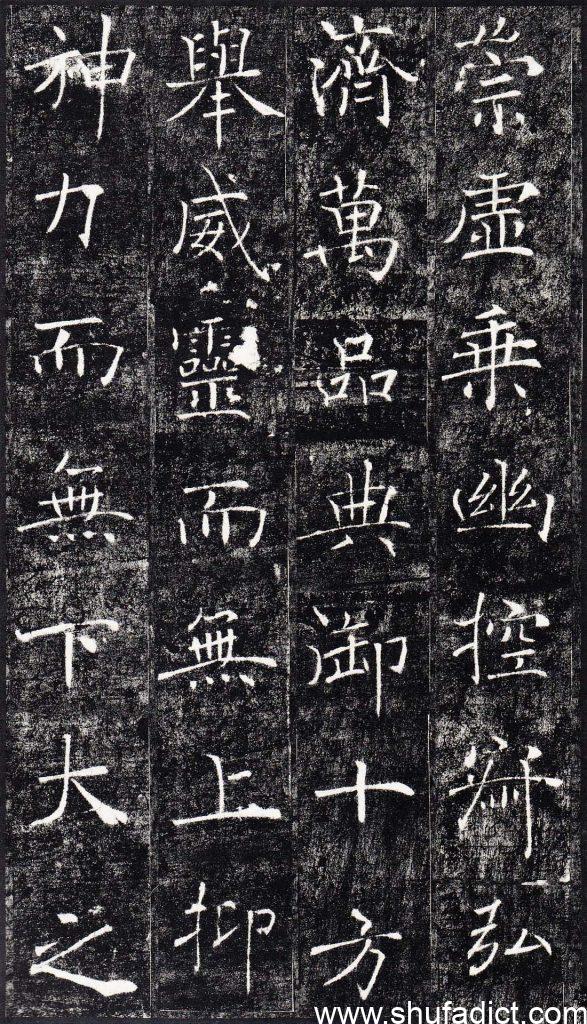 崇虛乘幽控寂弘
濟萬品典御十方
舉威靈而無上抑
神力而無下大之
www.shufadict.com